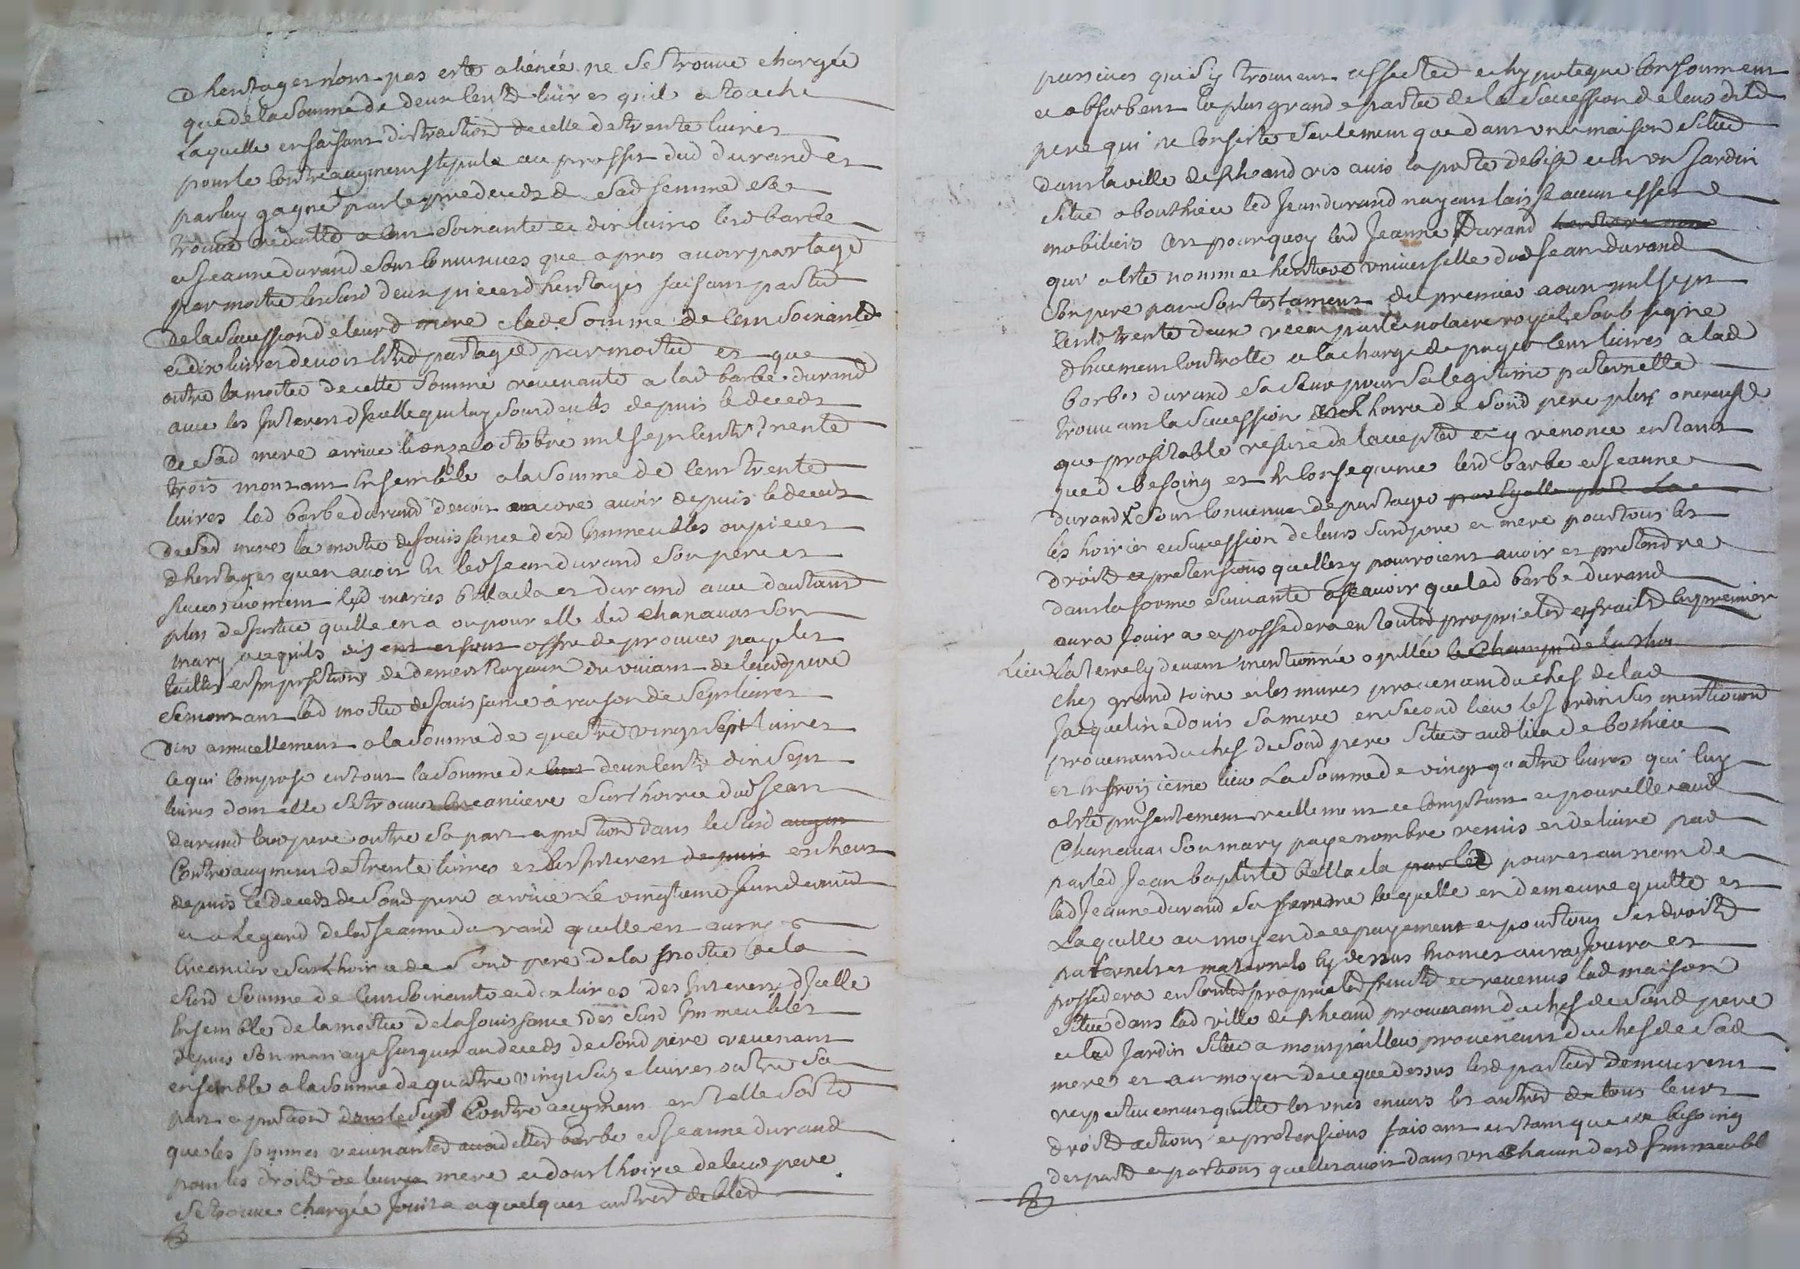 d'heritages n'ont pas esté aliénée ne se trouve chargée
que de la somme de deux cents livres qu'il a touché
laquelle en faisant distraction de celle de trente livres
pour le contreaugment stipulé au proffit dud durand et
par luy gagné par le predeceds de sad femme elle
trouve reduitte a cent soixante et dix livres lesd barbe
et jeanne durand sont convenues que apres avoir partagé
par moitié lesd deux pieces d'heritages faisant partie
de la succession de leurd mere lad somme de cent soixante
et dix livres devoit estre partagée par moitié et que
outre la moitié de cette somme revenante a lad barbe durand
avec les interest d'icelle qui luy sont deubs depuis le deceds
de sad mere arrivé le onze octobre mil sept cents trente
trois montant ensemble a la somme de cent trente
livres lad barbe durand devoit encore avoir depuis le deceds
de sad mere la moitié de jouissance desd immeubles ou pieces
d'heritages qu'en avoit eu led jean durand son pere et
successivement lesd mariés bellacla et durand avec d'autant
plus de justice quelle en a ou pour elle led chanavas son
mary acquis et offre de prouver payé les
tailles et impositions de deniers royaux du vivant de leurd pere
se montant lad moitié de jouissance a raison de sept livres
dix annuellement a la somme de quatre vingt sept livres
ce qui compose en tout la somme de cent deux cents dix sept
livres dont elle se trouve creanciere sur l'hoirie dud jean
durand leur pere outre sa part et portion dans le susd augm
contre augment de trente livres et les interest depuis escheus
depuis le deceds de sond pere arrivé le vingtieme juin dernier
et a legard de lad jeanne durand quelle est aussy
creanciere sur l'hoirie de sond pere de la moitié de la
susd somme de cent soixante et dix livres des interest d'icelle
ensemble de la moitié de la jouissance des susd immeubles
depuis son mariage jusques au deceds de sond pere revenant
ensemble a la somme de quatre vingt seize livres outre sa
part et portion dans le susd contre augment en telle sorte
que les sommes revenantes auxdittes barbe et jeanne durand
pour les droits de leurd mere et dont l'hoirie de leur pere
se trouve chargée jointe a quelques autres debtes
passives qui s'y trouvent affectes et hypoteque consomment
et absorbent la plus grande partie de la succession de leur dit
pere qui ne consiste seulement que dans une maison située
dans la ville de vis avis la porte de bise et en un jardin
situé a bouthieu led jean durand n'ayant laissé aucun effet
mobiliers cest pourquoy led jeanne durand
qui a esté nommée heritiere universelle dud jean durand
son pere par son testament du premier aoust mil sept
cents trente deux receu par le notaire royal soubsigné
d'huement controllé a la charge de payer cent livres a lad
barbe durand sa soeur pour sa legitime paternelle
trouvant la succession et hoirie de sond pere plus onereuse
que profitable refuse de l'accepter et y renonce en tant
que de besoing et en consequence lesd barbe et jeanne
durand sont convenues de partager
les hoiries et succession de leurs susd pere et mere pour tous les
droits et pretensions quelles y pourroient avoir et pretendre
dans la forme suivante assavoir que lad barbe durand
aura jouira et possedera en toutes proprietes et fruits en premier
lieu la terre cy devant mentionnée apellée le champ de
chez grand toine et les mures provenant du chef de lad
jacqueline donis sa mere en second lieu le jardin sus mentionné
provenant du chef de sond pere situé aud lieu de bothieu
et en troizieme lieu la somme de vingt quatre livres qui luy
a esté presentement reellement et comptant et pour elle aud
chanavas son mary payé nombré remis et delivré par
parled jean baptiste bellacla par led pour et au nom de
lad jeanne durand sa femme laquelle en demeure quitte et
laquelle au moyen de ce payement et pour tous ses droits
paternels et maternels cy dessus enoncés aura jouira et
possedera en toutes proprietes fruits et revenus lad maison
située dans lad ville de provenant du chef de sond pere
et led jardin situé a montpailleu provenant du chef de sad
mere et au moyen de ce que dessus lesd parties demeurent
respectivement quitte les unes envers les autres de tous leurs
droits actions et pretensions faisant en tant que de besoing
des parts et portions quelles avoit dans un chacun desd immeubl